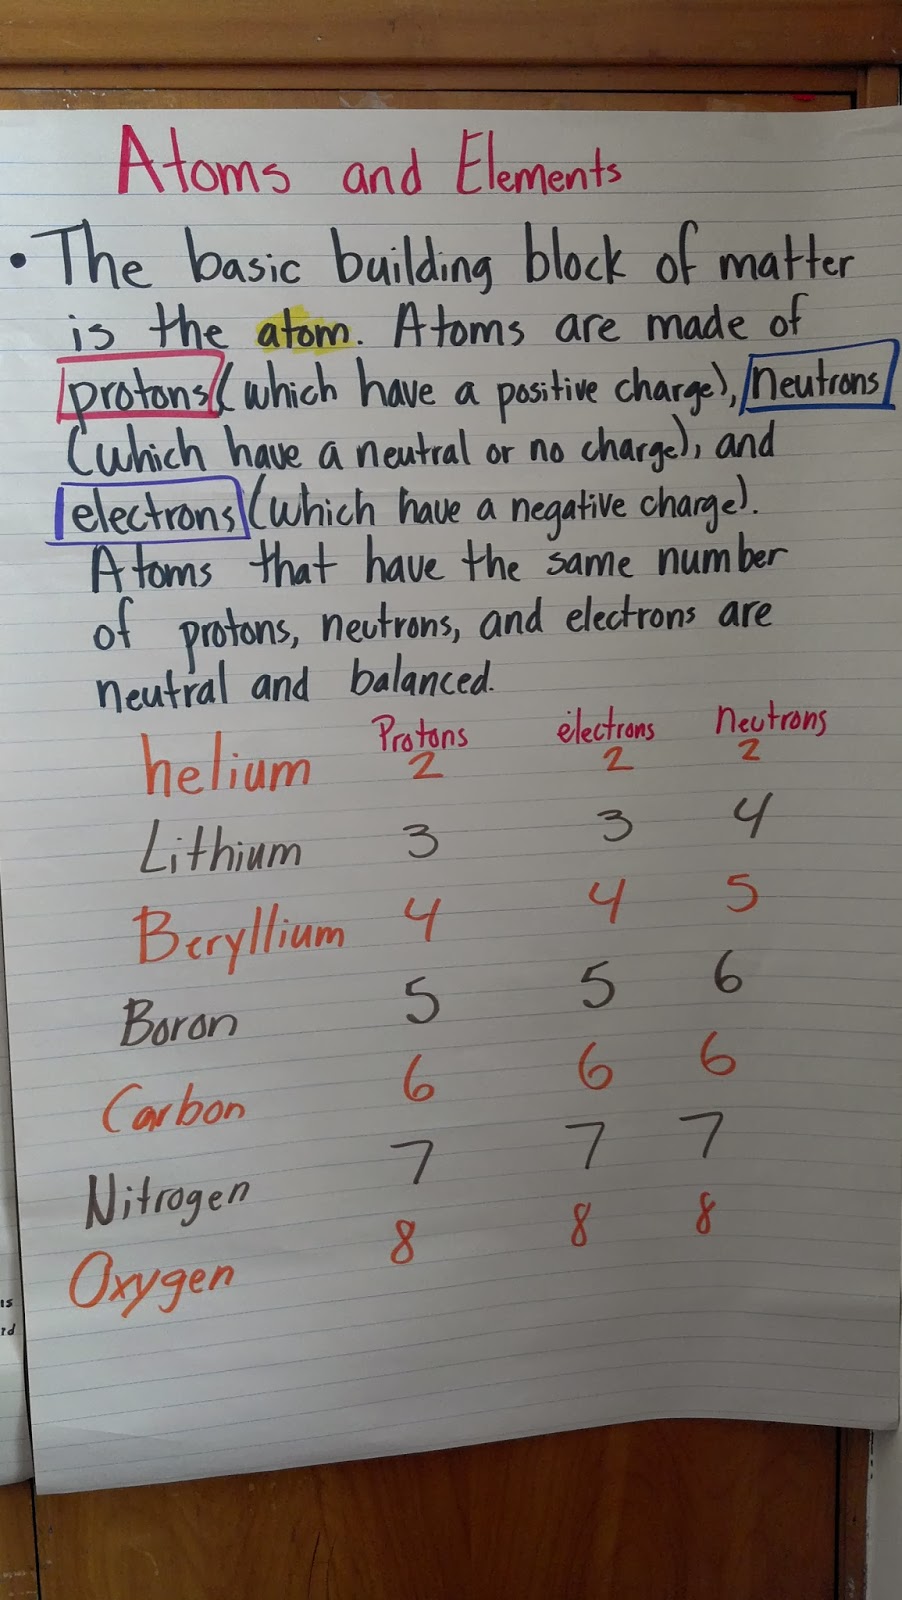 Atoms and Elements
• The basic building block of matter
is the atom. Atoms are made of
protons (which have a positive charge), neutrons
(which have a neutral or no charge), and
electrons (which have a negative charge).
Atoms that have the same number
of protons, neutrons, and electrons are
neutral and balanced.
Protons electrons Neutrons
helium 2 2 2
Lithium 3 3 4
Beryllium 4 4 5
Boron 5 5 6
Carbon 6 6 6
Nitrogen 7 7 7
Oxygen 8 8 8